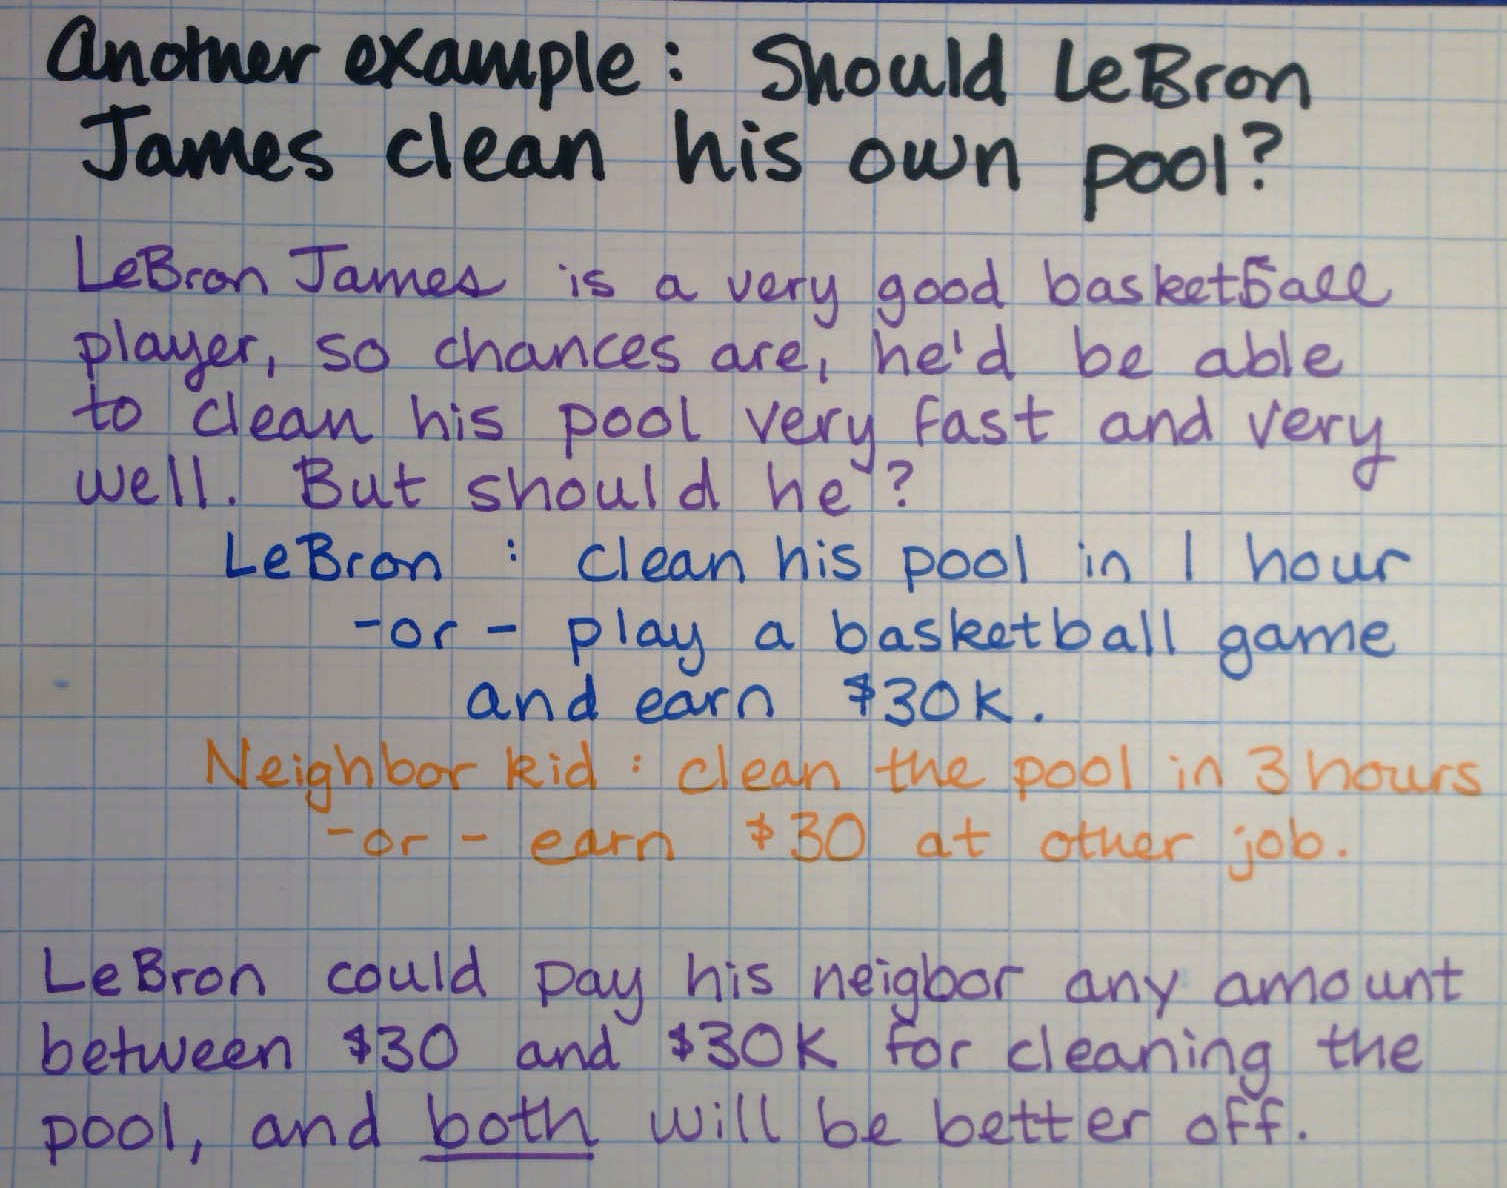 Another example: Should LeBron
James clean his own pool?
LeBron James is a very good basketball
player, so chances are, he'd be able
to clean his pool very fast and very
well. But should he?
LeBron : clean his pool in 1 hour
-or- play a basketball game
and earn $30K.
Neighbor kid : clean the pool in 3 hours
-or- earn $30 at other job.
LeBron could pay his neigbor any amount
between $30 and $30K for cleaning the
pool, and both will be better off.